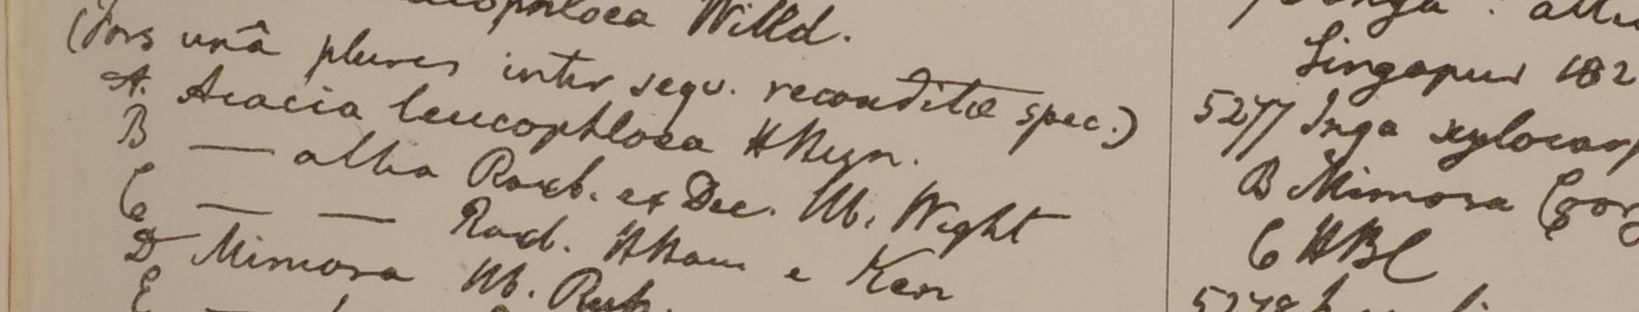 Willd.
(Fors unâ plures inter sequ. reconditæ spec.)
A. Acacia leucophloea HHeyn.
B — alba Roxb. ex Dec. Hb. Wight
C — — Roxb. HHam e
D Mimosa Hb.
E
Singapur 182
5277 Inga xylocarp
B Mimosa
C HBC
5278